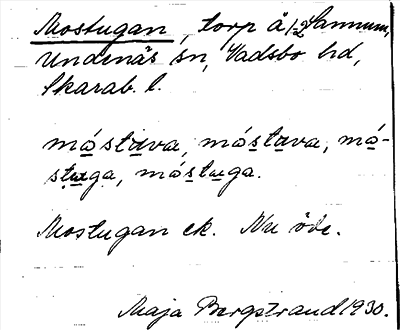 Mostugan, torp å 1/2 Sannum,
Undenäs sn, Vadsbo hd,
Skarab. l.
måstava, måstava, må-
stuga, måstuga.
Mostugan ek. Nu öde.
Maja Bergstrand 1930.